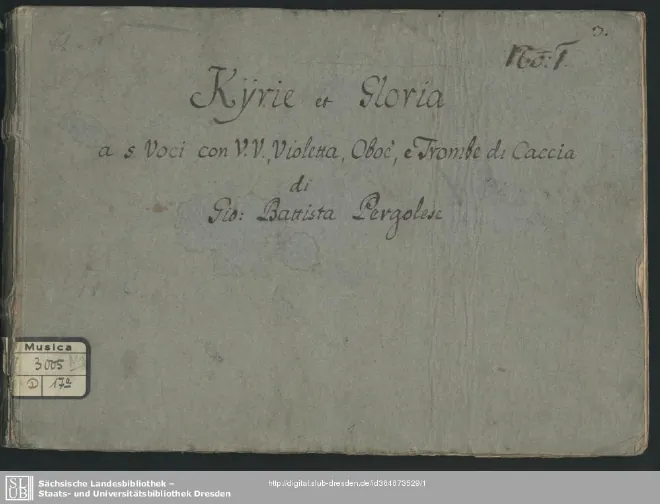 2.
Kÿrie et Gloria
a 5. Voci con V.V. Violetta, Oboè, e Trombe di Caccia
di
Gio: Battista Pergolese
Musica
3005
D 17a
SLUB
Sächsische Landesbibliothek –
Staats- und Universitätsbibliothek Dresden
http://digital.slub-dresden.de/id364873529/1